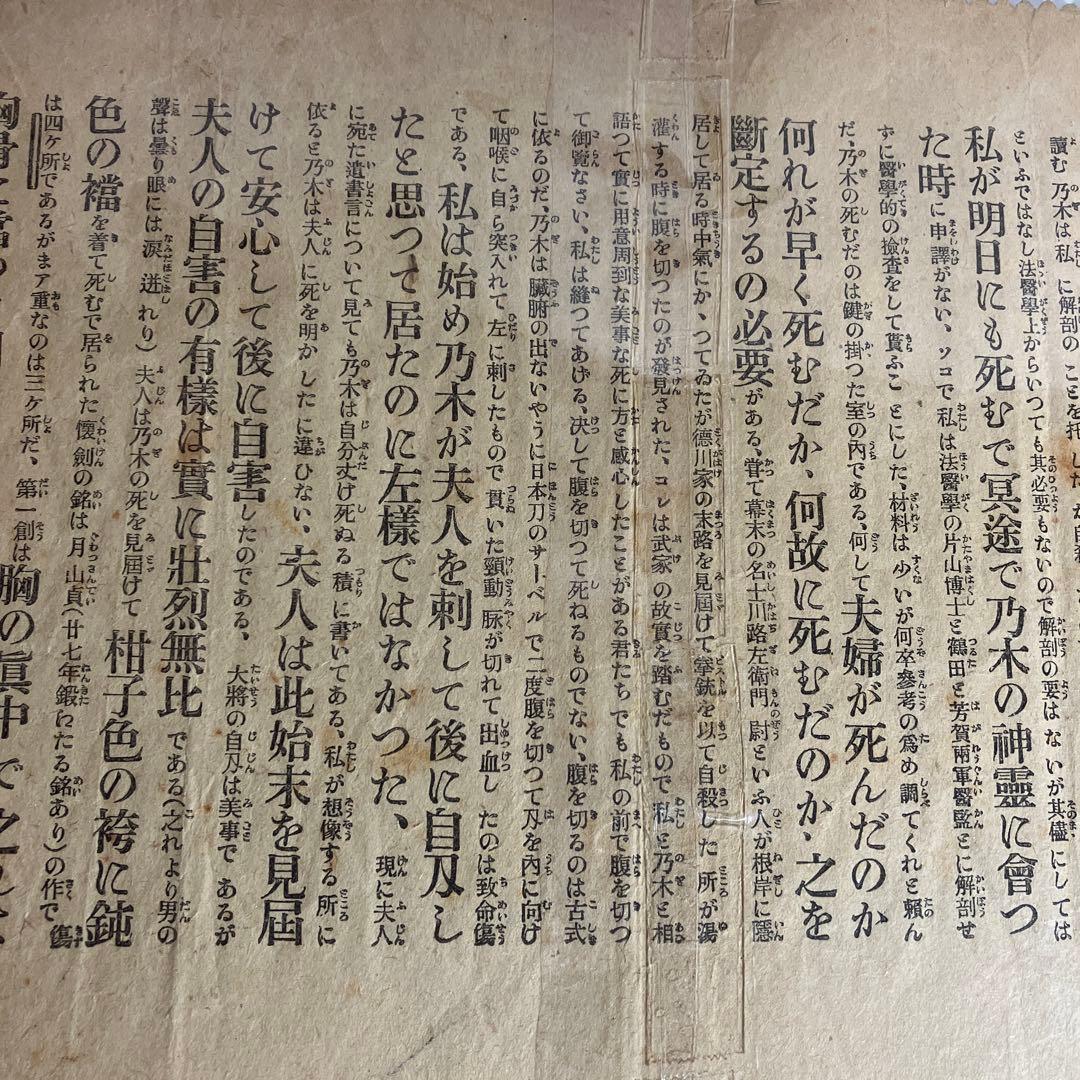 讀む 乃木は私 に解剖の ことを托 した
といふではなし法醫學上からいつても其必要もないので解剖の要はな いが其儘にしては
私が明日にも死むで冥途で乃木の神靈に會つ
た時に申譯がない、ソコで 私は法醫學の片山博士と鶴田と芳賀兩軍醫監とに解剖せ
ずに醫學的の撿査をして貰ふこ とにした、材料は 少 いが何卒參考の爲め 調 てくれと賴ん
だ、乃木の死むだのは鍵の掛つた室の內である、何して夫婦が死んだのか
何れが早く死むだか、何故に死むだのか、之を
斷定するの必要がある、甞て幕末の名士川路左衛門 尉といふ人が根岸に隱
居して居る時中氣にか、つてゐたが德川家の末路を見屆けて拳銃を以て自殺した 所が湯
灌する時に腹を切つたのが發見された、コレは武家 の故實を踏むだもので 私と乃木と相
語つて實に用意周到な美事な死に方と感心したことがある君たちでも 私 の前で腹を切つ
て御覽なさい、私は縫つてあげる、決して腹を切つて死ねるものでない、腹を切るのは古式
に依るのだ、乃木は臟腑の出ないやうに日本刀のサーベルで二度腹を切つて刄を內に向け
て咽喉に自ら突入れて左に刺したもので 貫いた頸動 脉が切れて出血し たのは致命傷
である、私は始め乃木が夫人を刺して後に自刄し
たと思つて居たのに左樣ではなかつた、 現に夫人
に宛た遺書言について見ても乃木は自分丈け死ぬる 積 に書いてある、私が想像する 所に
依ると乃木は夫人 に死を明か したに違 ひない、夫人は此始末を見屆
けて安心して後に自害したのである、 大將の自刄は美事で あるが
夫人の自害の有樣は實に壯烈無比 である(之れより男の
聲は曇り眼には 淚 迸 れり) 夫人は乃木の死を見屆けて 柑子色の袴に鈍
色の襠を着て死むで居られた懷劍の銘は月 山貞(廿七年鍛 わたる銘あり)の作で 傷
は四ケ所であるがまア重なのは三ケ所だ、 第一創は胸の眞中で之